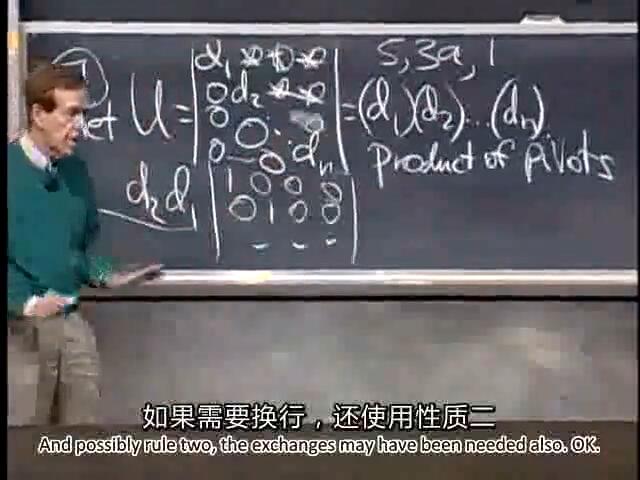 ⑦
det U = | d₁ * * * | = (d₁)(d₂)...(dₙ).
5, 3a, 1
0 d₂ * *
0 0 .
0 0 . dₙ
product of pivots
d₂ d₁ | 1 0 0 0 |
0 1 0 0
- - -
如果需要换行，还使用性质二
And possibly rule two, the exchanges may have been needed also. OK.